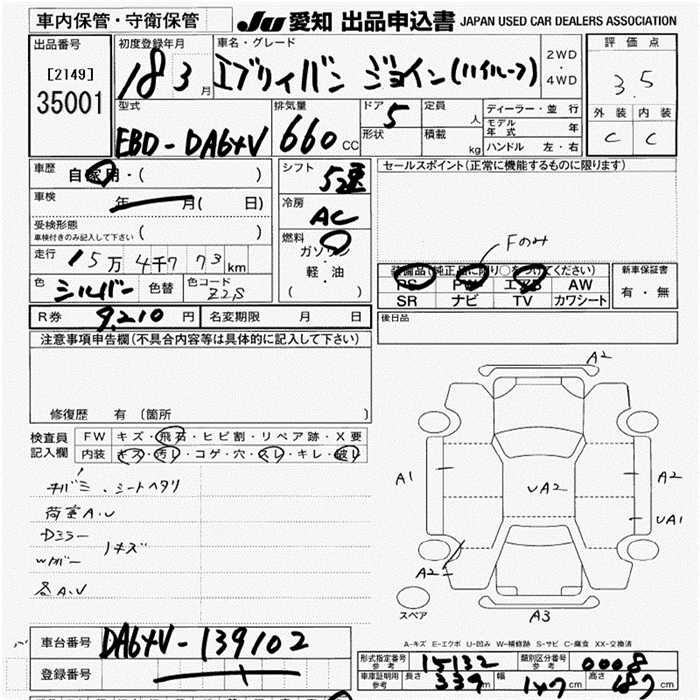 車内保管・守衛保管
JU 愛知 出品申込書 JAPAN USED CAR DEALERS ASSOCIATION
出品番号
[2149]
35001
初度登録年月
18 3 月
車名・グレード
エブリィバン ジョイン(ハイルーフ)
2WD
4WD
評価点
3.5
外装 内装
C C
型式
EBD-DA64V
排気量
660 CC
ドア
5
形状
定員
人
積載
kg
ディーラー・並行
モデル年式 年
ハンドル 左・右
車歴
自家用・( )
車検
年 月( 日)
受検形態
車検付きのみ記入して下さい ( )
走行
15万 4千7 73 km
色
シルバー
色替
色コード
Z2S
シフト
5速
冷房
AC
燃料
ガソリン
軽・油
( )
セールスポイント(正常に機能するものに限ります)
Fのみ
装備品(純正品に限り○をつけてください)
PS PW エアB AW
SR ナビ TV カワシート
新車保証書
有・無
R券 9,210 円
名変期限 月 日
後日品
注意事項申告欄(不具合内容等は具体的に記入して下さい)
修復歴 有 〔箇所 〕
検査員
記入欄
FW キズ・飛石・ヒビ割・リペア跡・X要
内装 キズ・汚レ・コゲ・穴・スレ・キレ・破レ
シートヘタリ
荷室A.U
Dミラー
Wカバー
キズ
各A.U
A2
A1
UA2
A2
UA1
A2
A3
スペア
A-キズ E-エクボ U-凹み W-補修跡 S-サビ C-腐食 XX-交換済
車台番号
DA64V-139102
登録番号
形式指定番号
参考
15132
類別区分番号
参考
0008
車庫証明用
参考
長さ 339 cm
幅 147 cm
高さ 187 cm